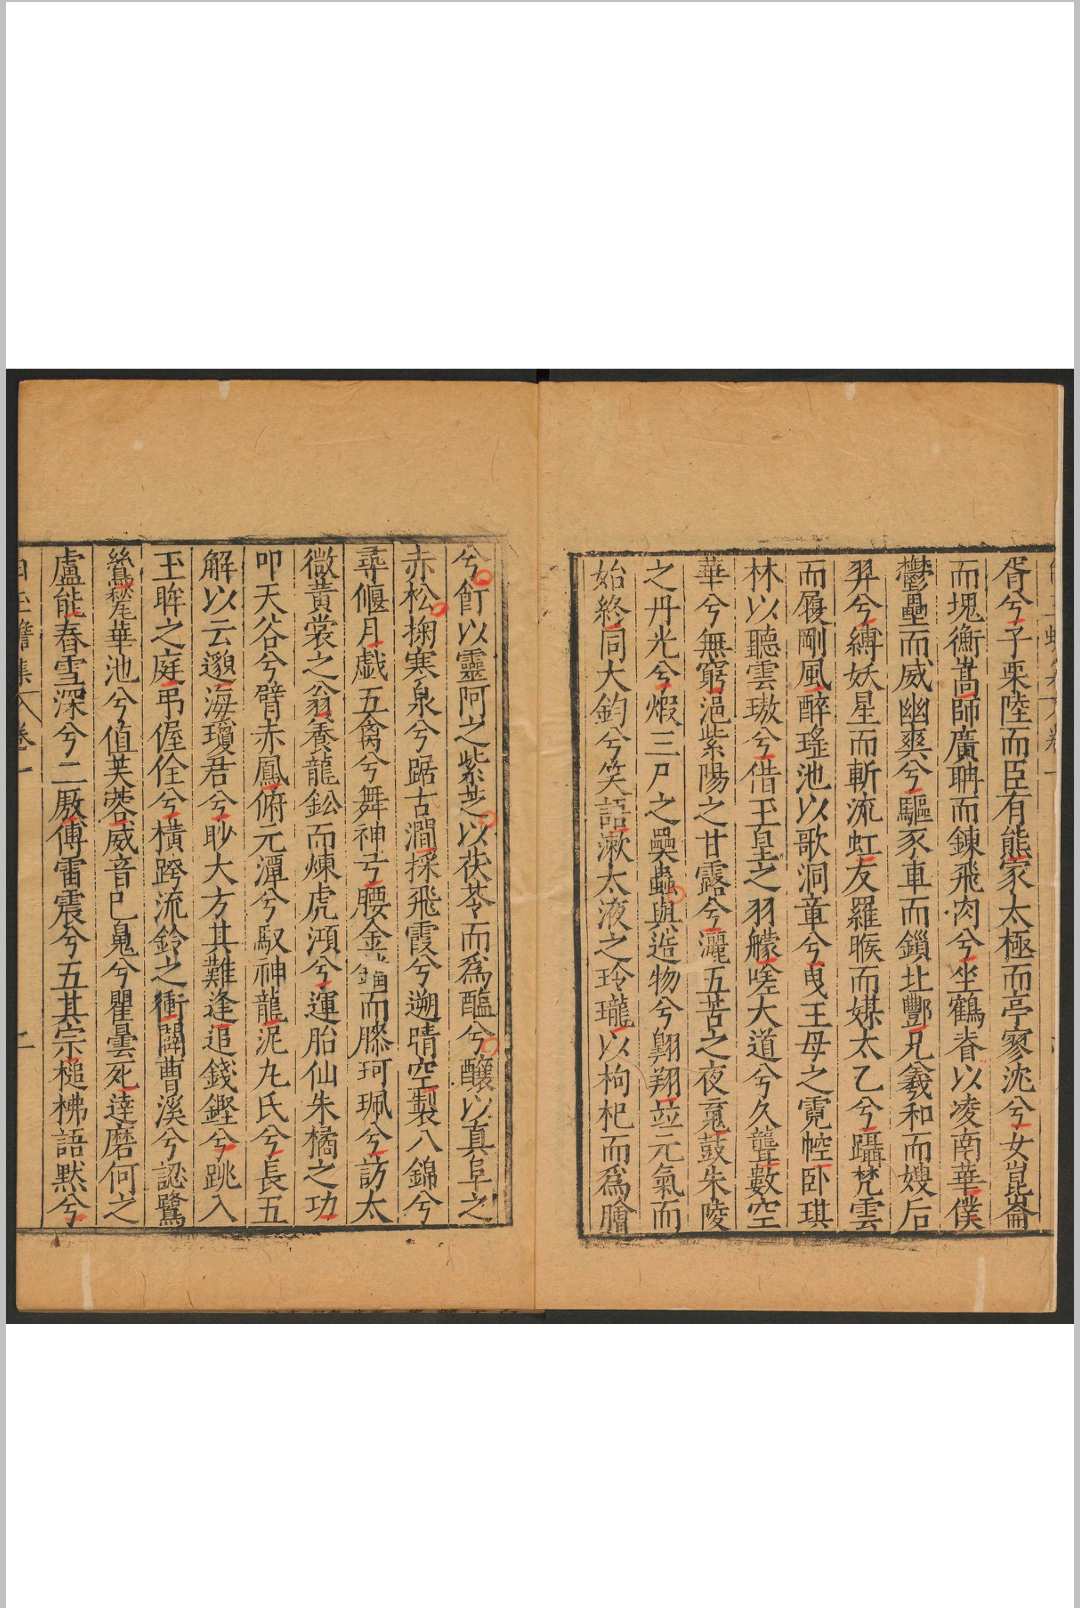 胥兮子栗陸而臣有熊家太極而亭寥沈兮女崑崙
而塊衡嵩師廣聃而鍊飛肉兮坐鶴脊以凌南華僕
鬱壘而威幽爽兮驅豕車而鎖北酆兄羲和而嫂后
羿兮縛妖星而斬流虹友羅睺而媒太乙兮躡梵雲
而履剛風醉瑤池以歌洞章兮曳王母之霓幢卧琪
林以聽雲璈兮借玉皇之羽艨嗟大道兮久聾數空
華兮無窮浥紫陽之甘露兮灑五苦之夜鼓朱陵
之丹光兮煆三尸之蟲與造物兮翺翔竝元氣而
始終同大鈞兮笑語漱太液之玲瓏以枸杞而爲膾
兮飣以靈阿之紫芝以茯苓而爲醢兮釀以真阜之
赤松掬寒泉兮踞古澗採飛霞兮遡晴空製八錦兮
尋偃月戯五禽兮舞神弓腰金而滕珂珮兮訪太
微黃裳之翁養龍鈆而煉虎澒兮運胎仙朱橘之功
叩天谷兮臂赤鳳俯元潭兮馭神龍泥九氏兮長五
解以云邈海瓊君兮眇大方其難逢追錢鏗兮跳入
玉眸之庭弔偓佺兮橫跨流鈴之衝闢曹溪兮認鷺
鷥穼華池兮值芙蓉威音已鬼兮瞿曇死達磨何之
盧能春雪深兮二厫傅雷震兮五其宗槌拂語黙兮